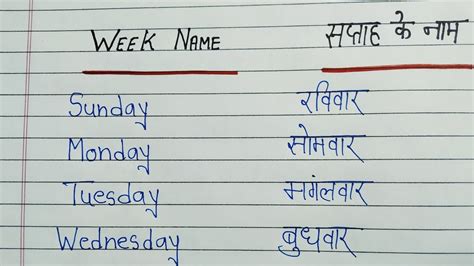 WEEK NAME सप्ताह के नाम
Sunday रविवार
Monday सोमवार
Tuesday मगंलवार
Wednesday बुधवार